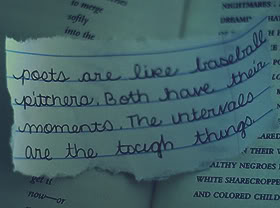 to merge
softly
into the
NIGHTMARES
DREAM
poets are like baseball
pitchers. Both have their
moments. The intervals
are the tough things.
get it
now—or
THEIR
ALTHY NEGROES
WHITE SHARECROPPE
AND COLORED CHILD